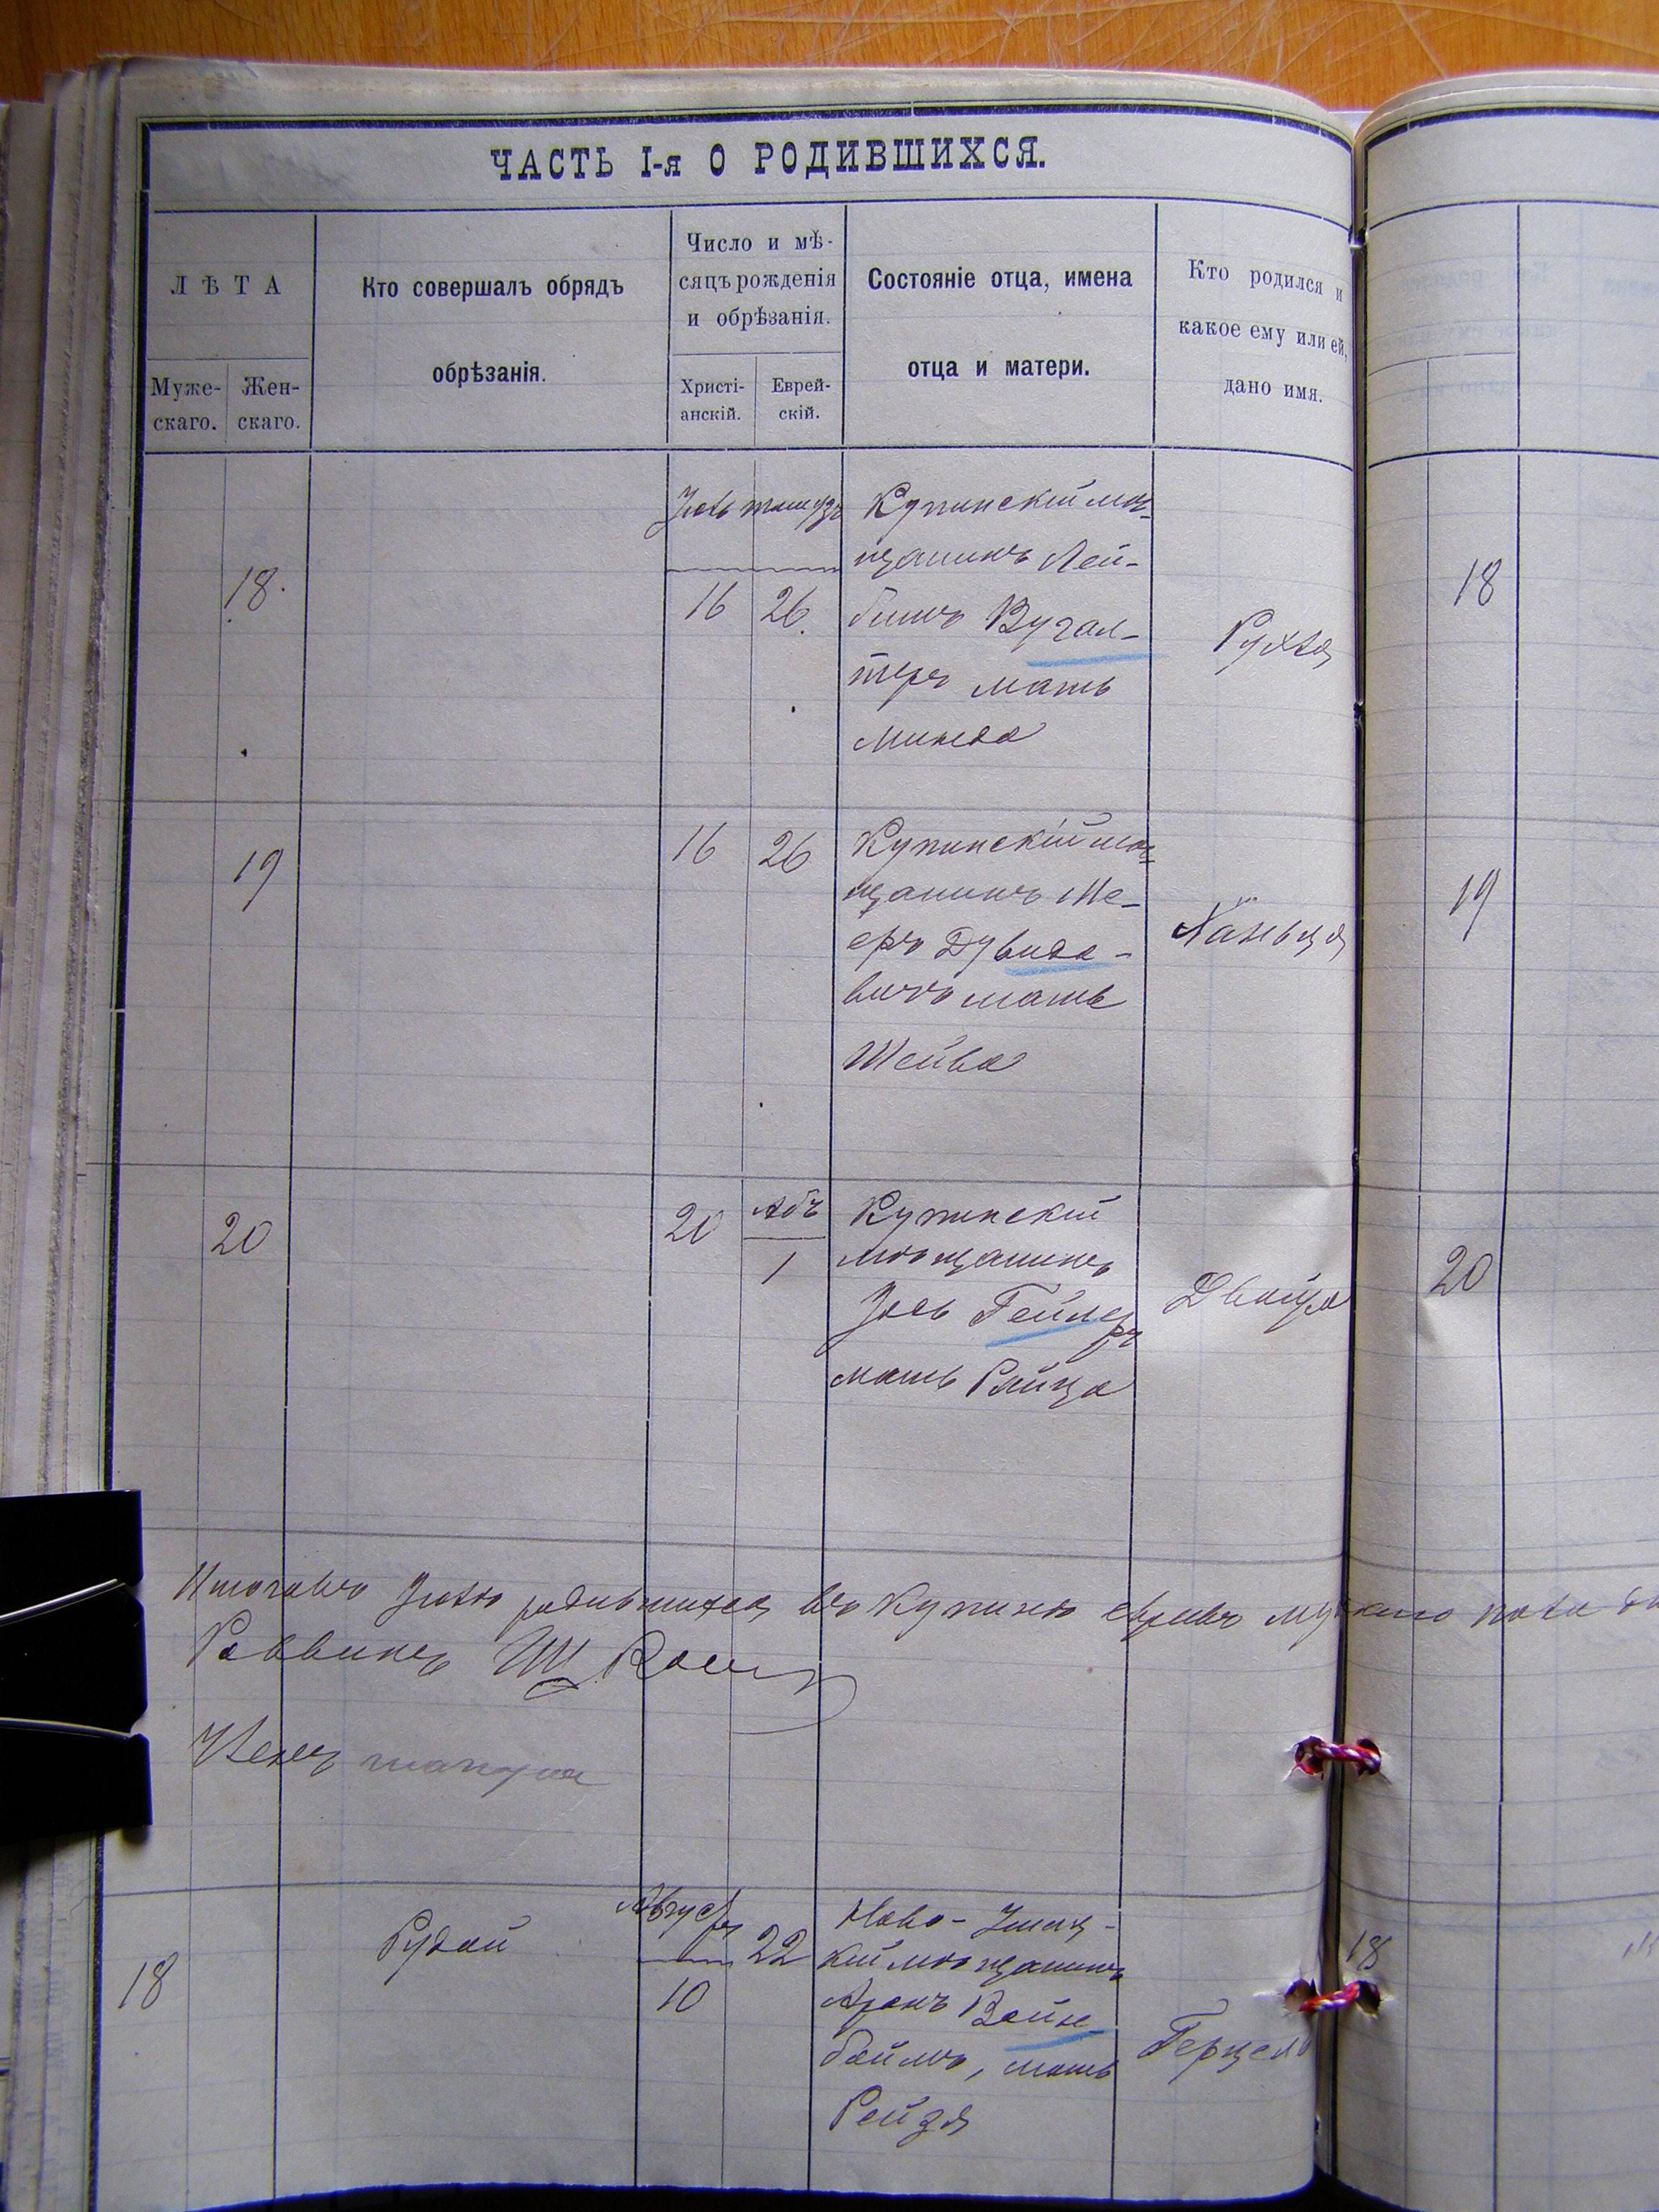 ЧАСТЬ I-я О РОДИВШИХСЯ.
ЛѢТА
Муже-
скаго.
Жен-
скаго.
Кто совершалъ обрядъ
обрѣзанія.
Число и мѣ-
сяцъ рожденія
и обрѣзанія.
Христі-
анскій.
Еврей-
скій.
Состояніе отца, имена
отца и матери.
Кто родился и
какое ему или ей,
дано имя.
18.
Іюль
16
тамузъ
26
Купинскій мѣ-
щанинъ Лей-
бишъ Вугал-
теръ мать
Минда
Рухля
18
19
16
26
Купинскій мѣ-
щанинъ Ме-
еръ Дувидо-
вичъ мать
Шейва
Ханьця
19
20
20
Абъ
1
Купинскій
мѣщанинъ
Іось Гейлеръ
мать Райца
Двойра
20
Итого въ Іюлѣ родившихся въ Купинѣ евреевъ мужскаго пола
Раввинъ Ш
18
Рудой
Августъ
10
22
Ново-Ушиц-
кій мѣщанинъ
Аронъ Вайн
боймъ, мать
Рейзя
Герцель
18